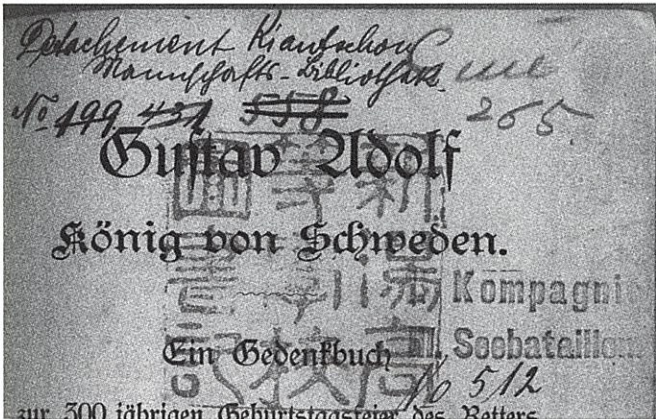 Detachement Kiautschou
Mannschafts-Bibliothek.
No 199 431 558
265.
Gustav Adolf
König von Schweden.
Kompagnie
Ein Gedenkbuch
III. Seebataillon
No 512
zur 300 jährigen Geburtstagsfeier des Retters